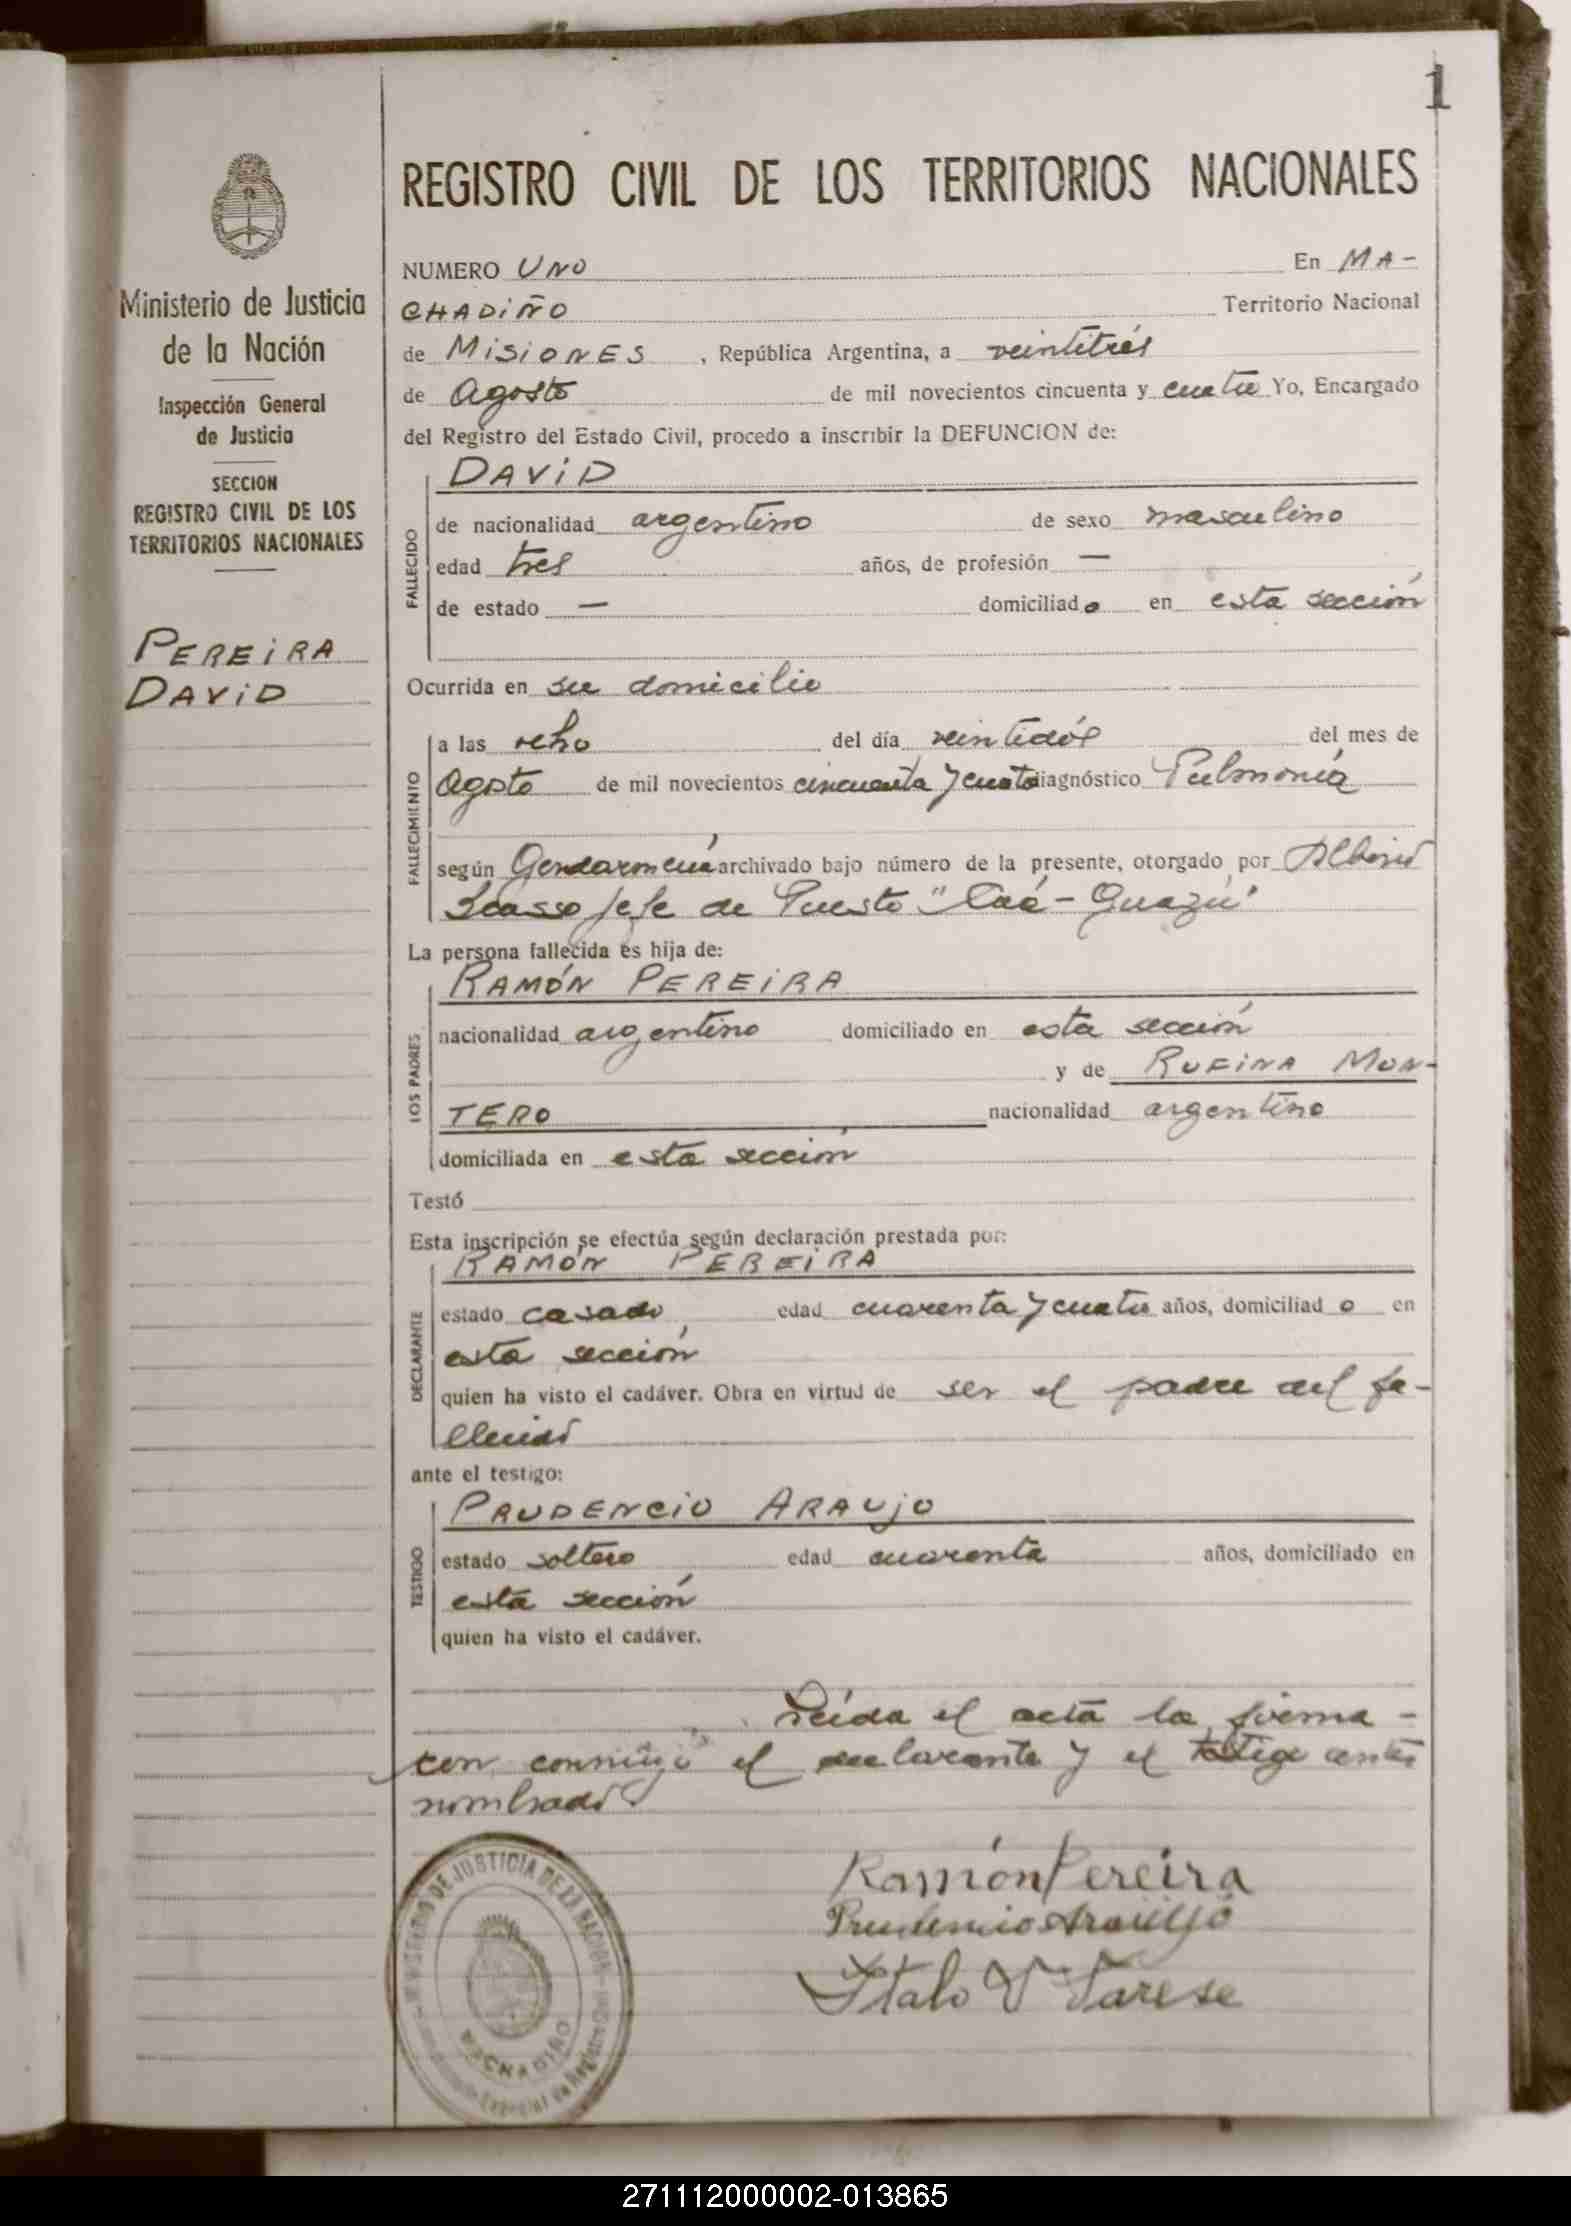 1
REGISTRO CIVIL DE LOS TERRITORIOS NACIONALES
Ministerio de Justicia
de la Nación
Inspección General
de Justicia
SECCION
REGISTRO CIVIL DE LOS
TERRITORIOS NACIONALES
PEREIRA
DAVID
NUMERO UNO En MA-
CHADIÑO Territorio Nacional
de MISIONES, República Argentina, a veintitrés
de Agosto de mil novecientos cincuenta y cuatro Yo, Encargado
del Registro del Estado Civil, procedo a inscribir la DEFUNCION de:
FALLECIDO
DAVID
de nacionalidad argentino de sexo masculino
edad tres años, de profesión —
de estado — domiciliado en esta sección
Ocurrida en su domicilio
FALLECIMIENTO
a las ocho del día veintidós del mes de
Agosto de mil novecientos cincuenta y cuatro diagnóstico Pulmonía
según Gendarmería archivado bajo número de la presente, otorgado por
Scasso Jefe de Puesto "Caá-Guazú"
La persona fallecida es hija de:
LOS PADRES
RAMÓN PEREIRA
nacionalidad argentino domiciliado en esta sección
y de RUFINA MON-
TERO nacionalidad argentino
domiciliada en esta sección
Testó
Esta inscripción se efectúa según declaración prestada por:
DECLARANTE
RAMÓN PEREIRA
estado casado edad cuarenta y cuatro años, domiciliado en
esta sección
quien ha visto el cadáver. Obra en virtud de ser el padre del fa-
llecido
ante el testigo:
TESTIGO
PRUDENCIO ARAUJO
estado soltero edad cuarenta años, domiciliado en
esta sección
quien ha visto el cadáver.
Leída el acta la firma-
ron conmigo el declarante y el testigo antes
nombrado.
Ramón Pereira
Prudencio Araujo
Italo V Varese
MINISTERIO DE JUSTICIA DE LA NACION
MACHADIÑO
271112000002-013865